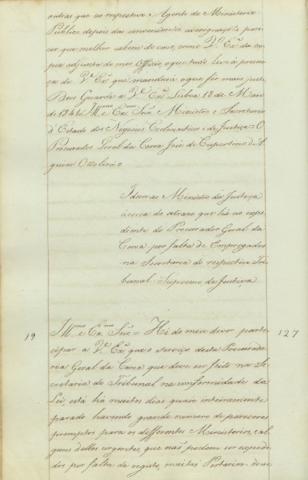 outras que os respectivos Agentes do Ministerio
Publico depois das convenientes averiguações
que melhor sabem do caso, como V. Exª da
adjunta do meu Officio, e que tudo levo á
de Vª Exª que mandará o que for mais justo
Deos Guarde a Vª Exª Lisboa 18 de Maio
de 1841 Illmº e Exmº Snr. Ministro e Secretario
d'Estado dos Negocios Ecclesiasticos e de Justiça = O
Procurador Geral da Coroa José de Cupertino d'A-
guiar Ottolini =
Idem ao Ministerio da Justiça
ácerca do atraso que ha no expe-
diente do Procurador Geral da
Coroa por falta de Empregados
na Secretaria do respectivo Tri-
bunal Supremo de Justiça
19
127
Illmº e Exmº Snr. = Hé do meu dever parte-
cipar a Vª Exª que o serviço desta Procurado-
ria Geral da Coroa que deve ser feito na Se-
cretaria do Tribunal na conformidade da
Lei, está ha muitos dias quasi inteiramente
parado havendo grande numero de pareceres
promptos para os differentes Ministerios, al-
guns delles urgentes, que não podem ser expedi-
dos por falta de registo, muitas Portarias